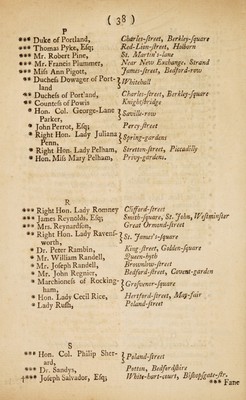 ( 38 )
P
*** Duke of Portland, Charles-street, Berkley-square
*** Thomas Pyke, Esq; Red-Lion-street, Holborn
*** Mr. Robert Pine, St. Martin's-lane
*** Mr. Francis Plummer, Near New Exchange, Strand
*** Miss Ann Pigott, James-street, Bedford-row
** Duchess Dowager of Port- } Whitehall
land
** Duchess of Portland, Charles-street, Berkley-square
** Countess of Powis Knightsbridge
* Hon. Col. George-Lane } Saville-row
Parker,
* John Perrot, Esq; Percy street
* Right Hon. Lady Juliana } Spring-gardens
Penn,
* Right Hon. Lady Pelham, Stretton-street, Picadilly
* Hon. Miss Mary Pelham, Privy-gardens.
R
*** Right Hon. Lady Romney Clifford-street
*** James Reynolds, Esq; Smith-square, St. John, Westminster
*** Mrs. Reynardson, Great Ormond-street
** Right Hon. Lady Ravens- } St. James's-square
worth,
* Dr. Peter Rambin, King street, Golden-square
* Mr. William Randell, Queen-hyth
* Mr. Joseph Randell, Brownlow-street
* Mr. John Regnier, Bedford-street, Covent-garden
* Marchioness of Rocking- } Grosvenor-square
ham,
* Hon. Lady Cecil Rice, Hertford-street, May-fair
* Lady Rush, Poland-street
S
*** Hon. Col. Philip Sher- } Poland-street
ard,
*** Dr. Sandys, Potton, Bedfordshire
†*** Joseph Salvador, Esq; White-hart-court, Bishopsgate-str.
*** Fane